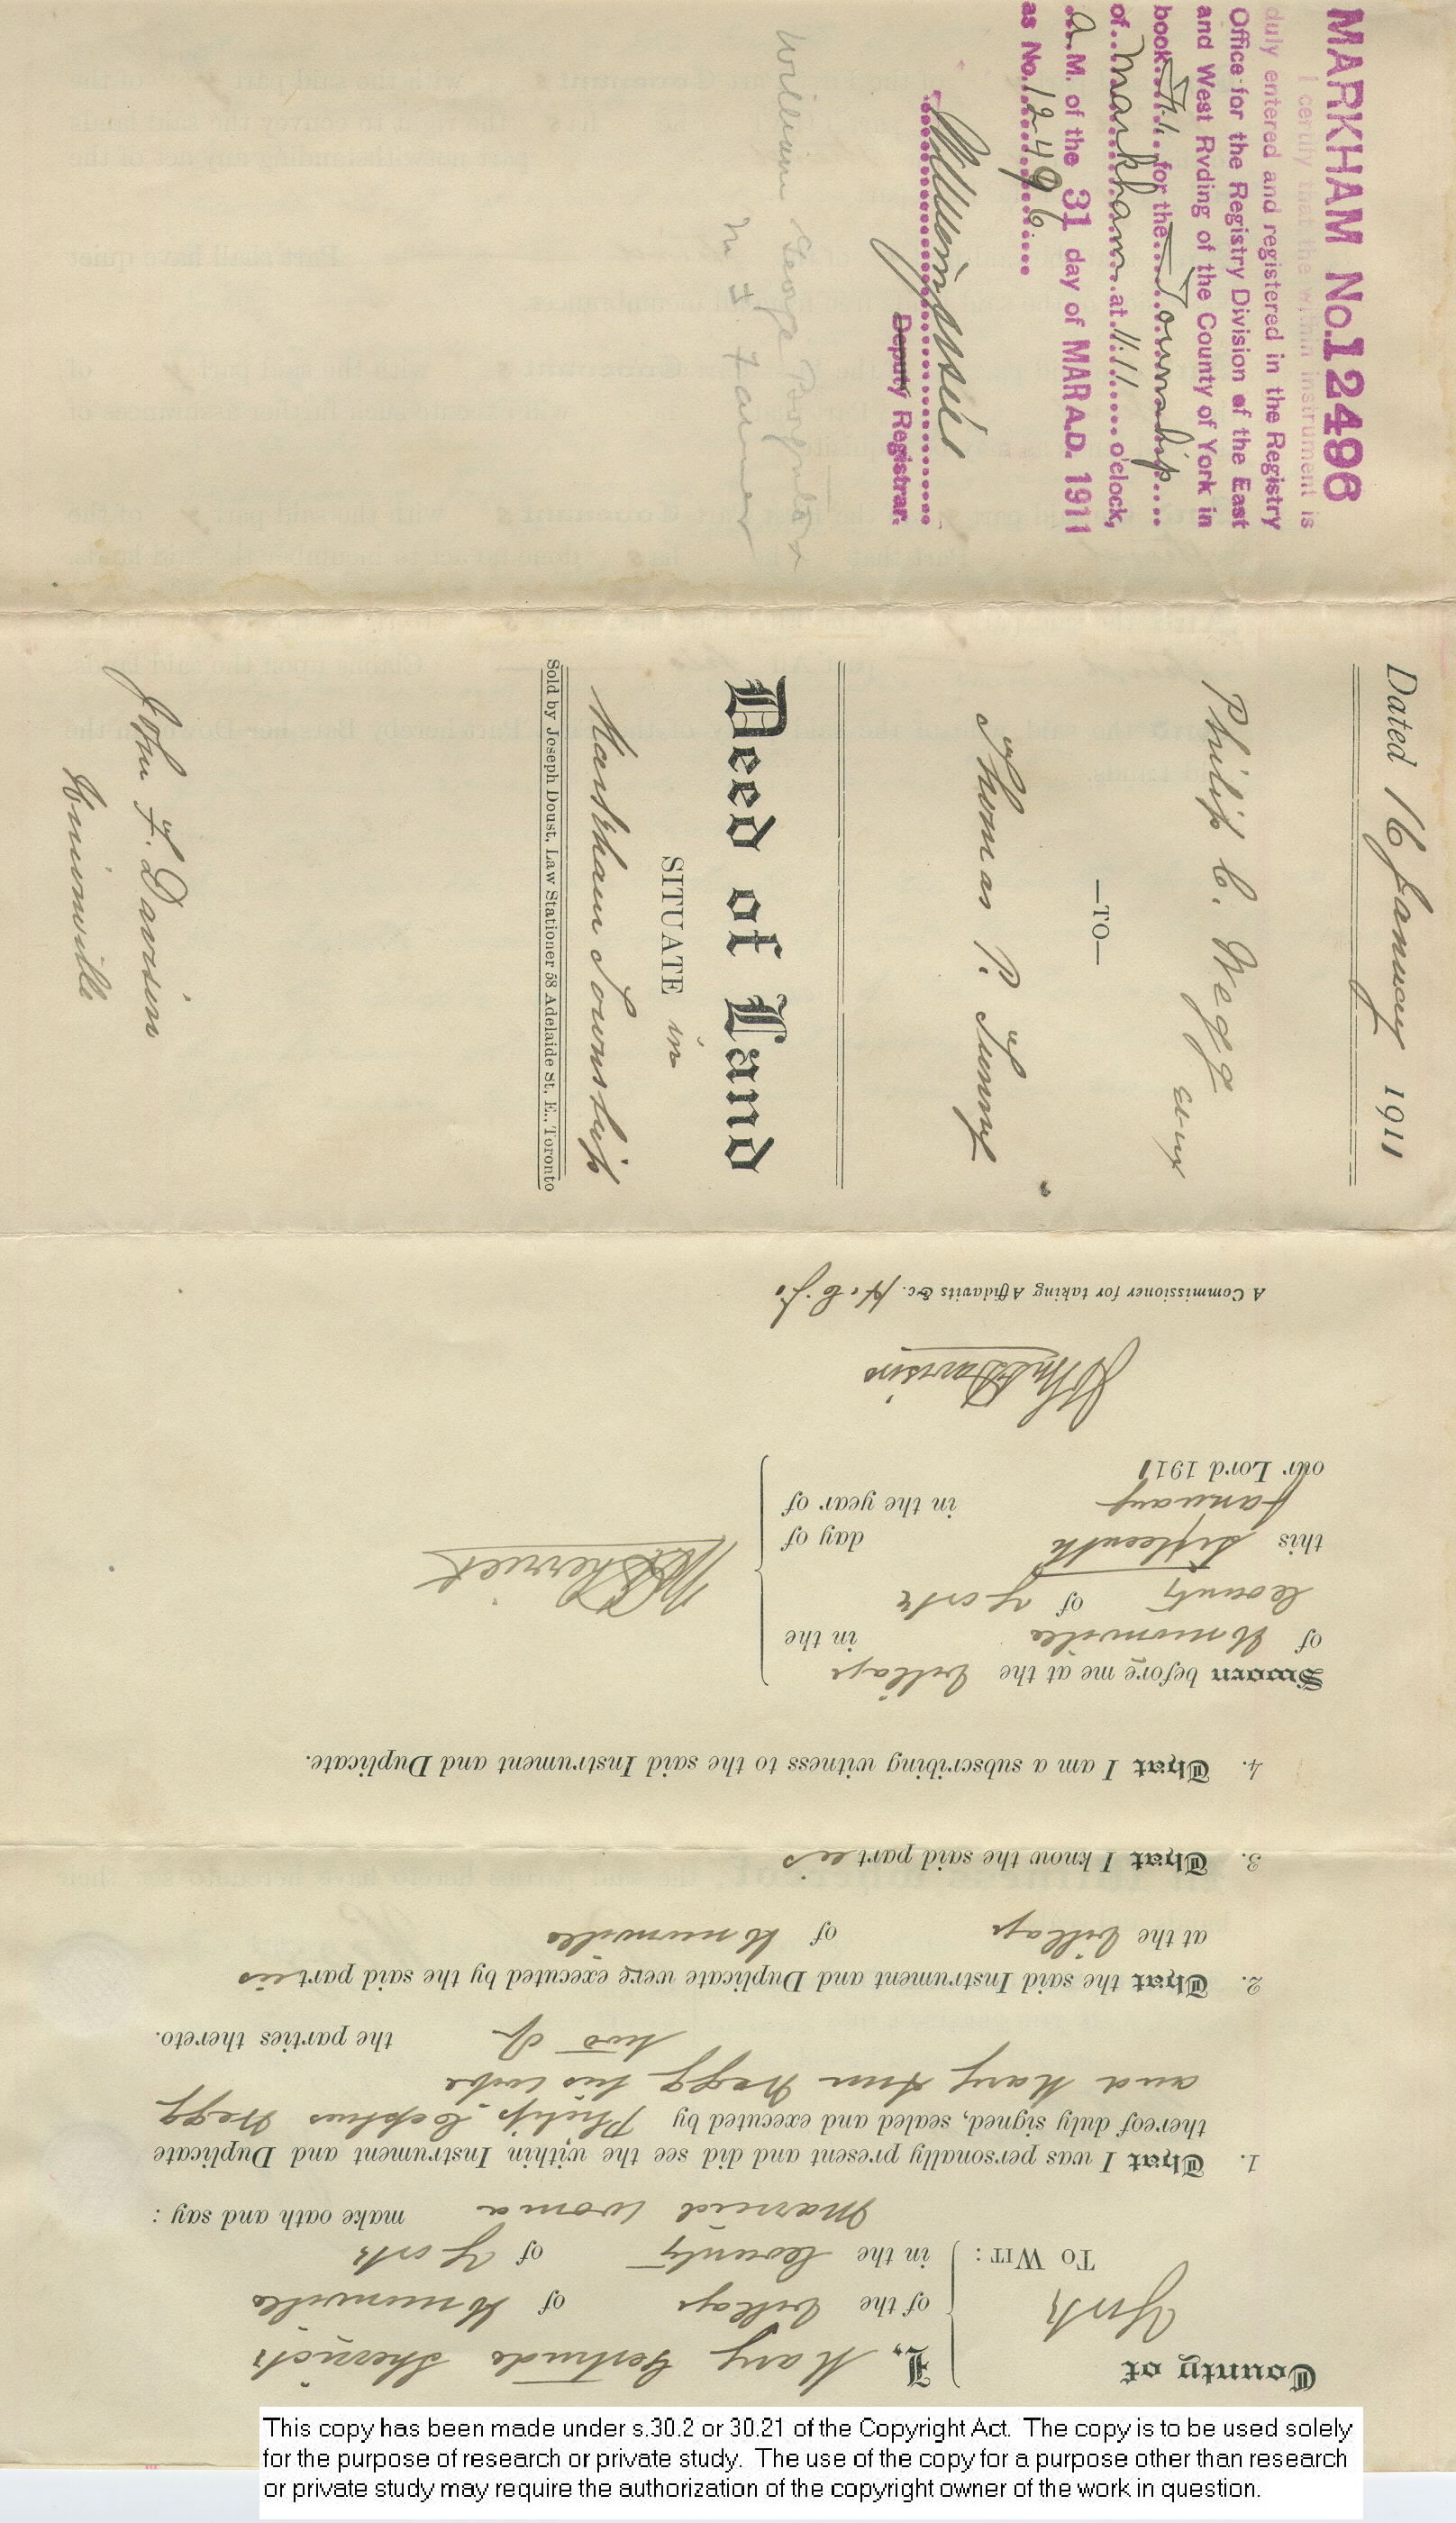 MARKHAM No. 12496
I certify that the within instrument is
duly entered and registered in the Registry
Office for the Registry Division of the East
and West Ryding of the County of York in
book for the Township
of Markham at 11.11 o'clock,
a.M. of the 31 day of MAR A.D. 1911
as No. 12496
Deputy Registrar.
William George
Dated 16 January 1911
Philip C. Wegg
et ux
—TO—
Thomas P.
Deed of Land
SITUATE in
Markham Township
Sold by Joseph Doust, Law Stationer 58 Adelaide St. E., Toronto
John F. Davison
Unionville
County of
York
To WIT:
I, Mary Gertrude Sherrick
of the Village of Unionville
in the County of York
Married Woman make oath and say:
1. That I was personally present and did see the within Instrument and Duplicate
thereof duly signed, sealed and executed by Philip Cephus Wegg
and Mary Ann Wegg his wife
two of the parties thereto.
2. That the said Instrument and Duplicate were executed by the said parties
at the Village of Unionville
3. That I know the said parties
4. That I am a subscribing witness to the said Instrument and Duplicate.
Sworn before me at the Village
of Unionville in the
County of York
this sixteenth day of
January in the year of
our Lord 1911
Sherrick
John F Davison
A Commissioner for taking Affidavits &c. H.C.J.
This copy has been made under s.30.2 or 30.21 of the Copyright Act. The copy is to be used solely
for the purpose of research or private study. The use of the copy for a purpose other than research
or private study may require the authorization of the copyright owner of the work in question.